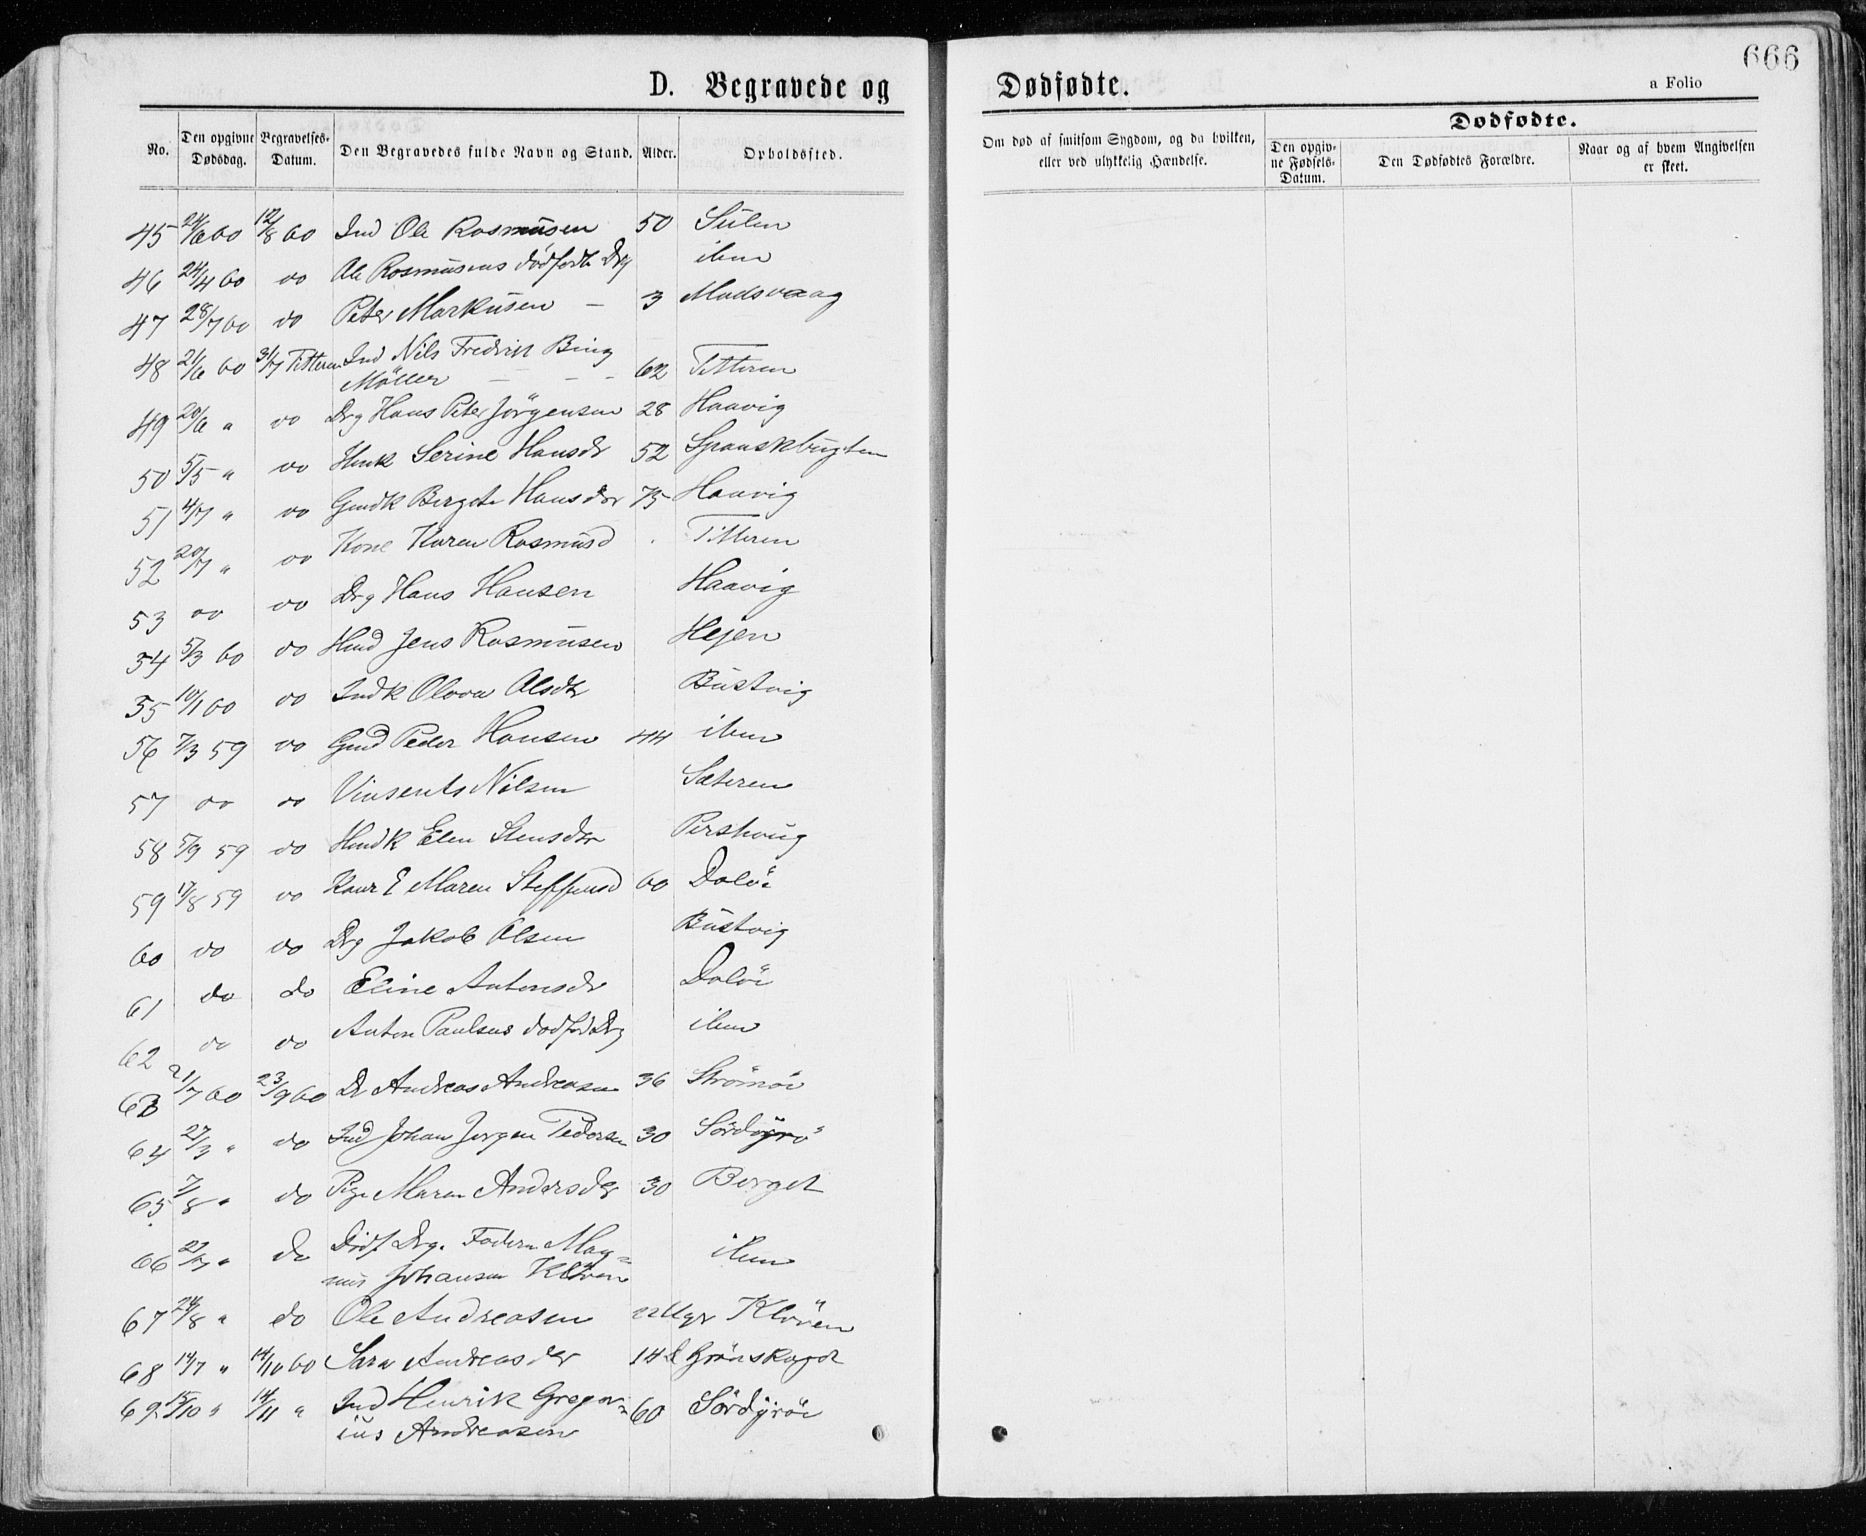 666
D. Begravede og Dødfødte.
a Folio
No. Den opgivne Dødsdag. Begravelses-Datum. Den Begravedes fulde Navn og Stand. Alder. Opholdsted.
Om død af smitsom Sygdom, og da hvilken, eller ved ulykkelig Hændelse.
Dødfødte.
Den opgivne Fødsels-Datum. Den Dødfødtes Forældre. Naar og af hvem Angivelsen er skeet.
45 24/6 60 12/8 60 Ind Ole Rasmusen 50 Sulen
46 24/4 60 do Ole Rasmusens dødfødte Drg ibm
47 28/7 60 do Peter Markusen — 3 Madsvaag
48 21/6 60 31/7 Titteren Ind Nils Fredrik Bing
Möller — — — 62 Titteren
49 20/6 " do Drg Hans Peter Jörgensen 28 Haavig
50 5/5 " do Hmk Serine Hansdr 52 Spanskbugten
51 4/7 " do Gmdk Bergete Hansdtr 75 Haavig
52 20/7 " do Kone Karen Rasmusd Titteren
53 do do Drg Hans Hansen Haavig
54 5/3 60 do Hmd Jens Rasmusen Hejen
55 10/1 60 do Indk Olova Olsdtr Bustvig
56 7/3 59 do Gmd Peder Hansen 44 ibm
57 do do Vinsents Nilsen Sæteren
58 5/9 59 do Hmdk Elen Stensdtr Pershaug
59 17/8 59 do Maren Steffensd 60 Dolöi
60 do do Drg Jakob Olsen Bustvig
61 do do Eline Antonsdr Dolöi
62 do do Anton Paulsens dødfød Drg ibm
63 21/7 60 23/9 60 Dr Andreas Andreasen 36 Strömöi
64 27/3 " do Ind Johan Jörgen Pedersen 30 Sördyrö
65 7/8 " do Pige Maren Andersdtr 30 Berget
66 27/7 " do Dödf Drg. Faderen Mag=
nus Johansen Klöven ibm
67 24/8 " do Ole Andreasen Klöven
68 14/7 " 14/10 60 Sara Andreasdtr 14 d Grönskaget
69 15/10 " 14/11 " Ind Henrik Gregor=
ius Andreasen 60 Sördyröi